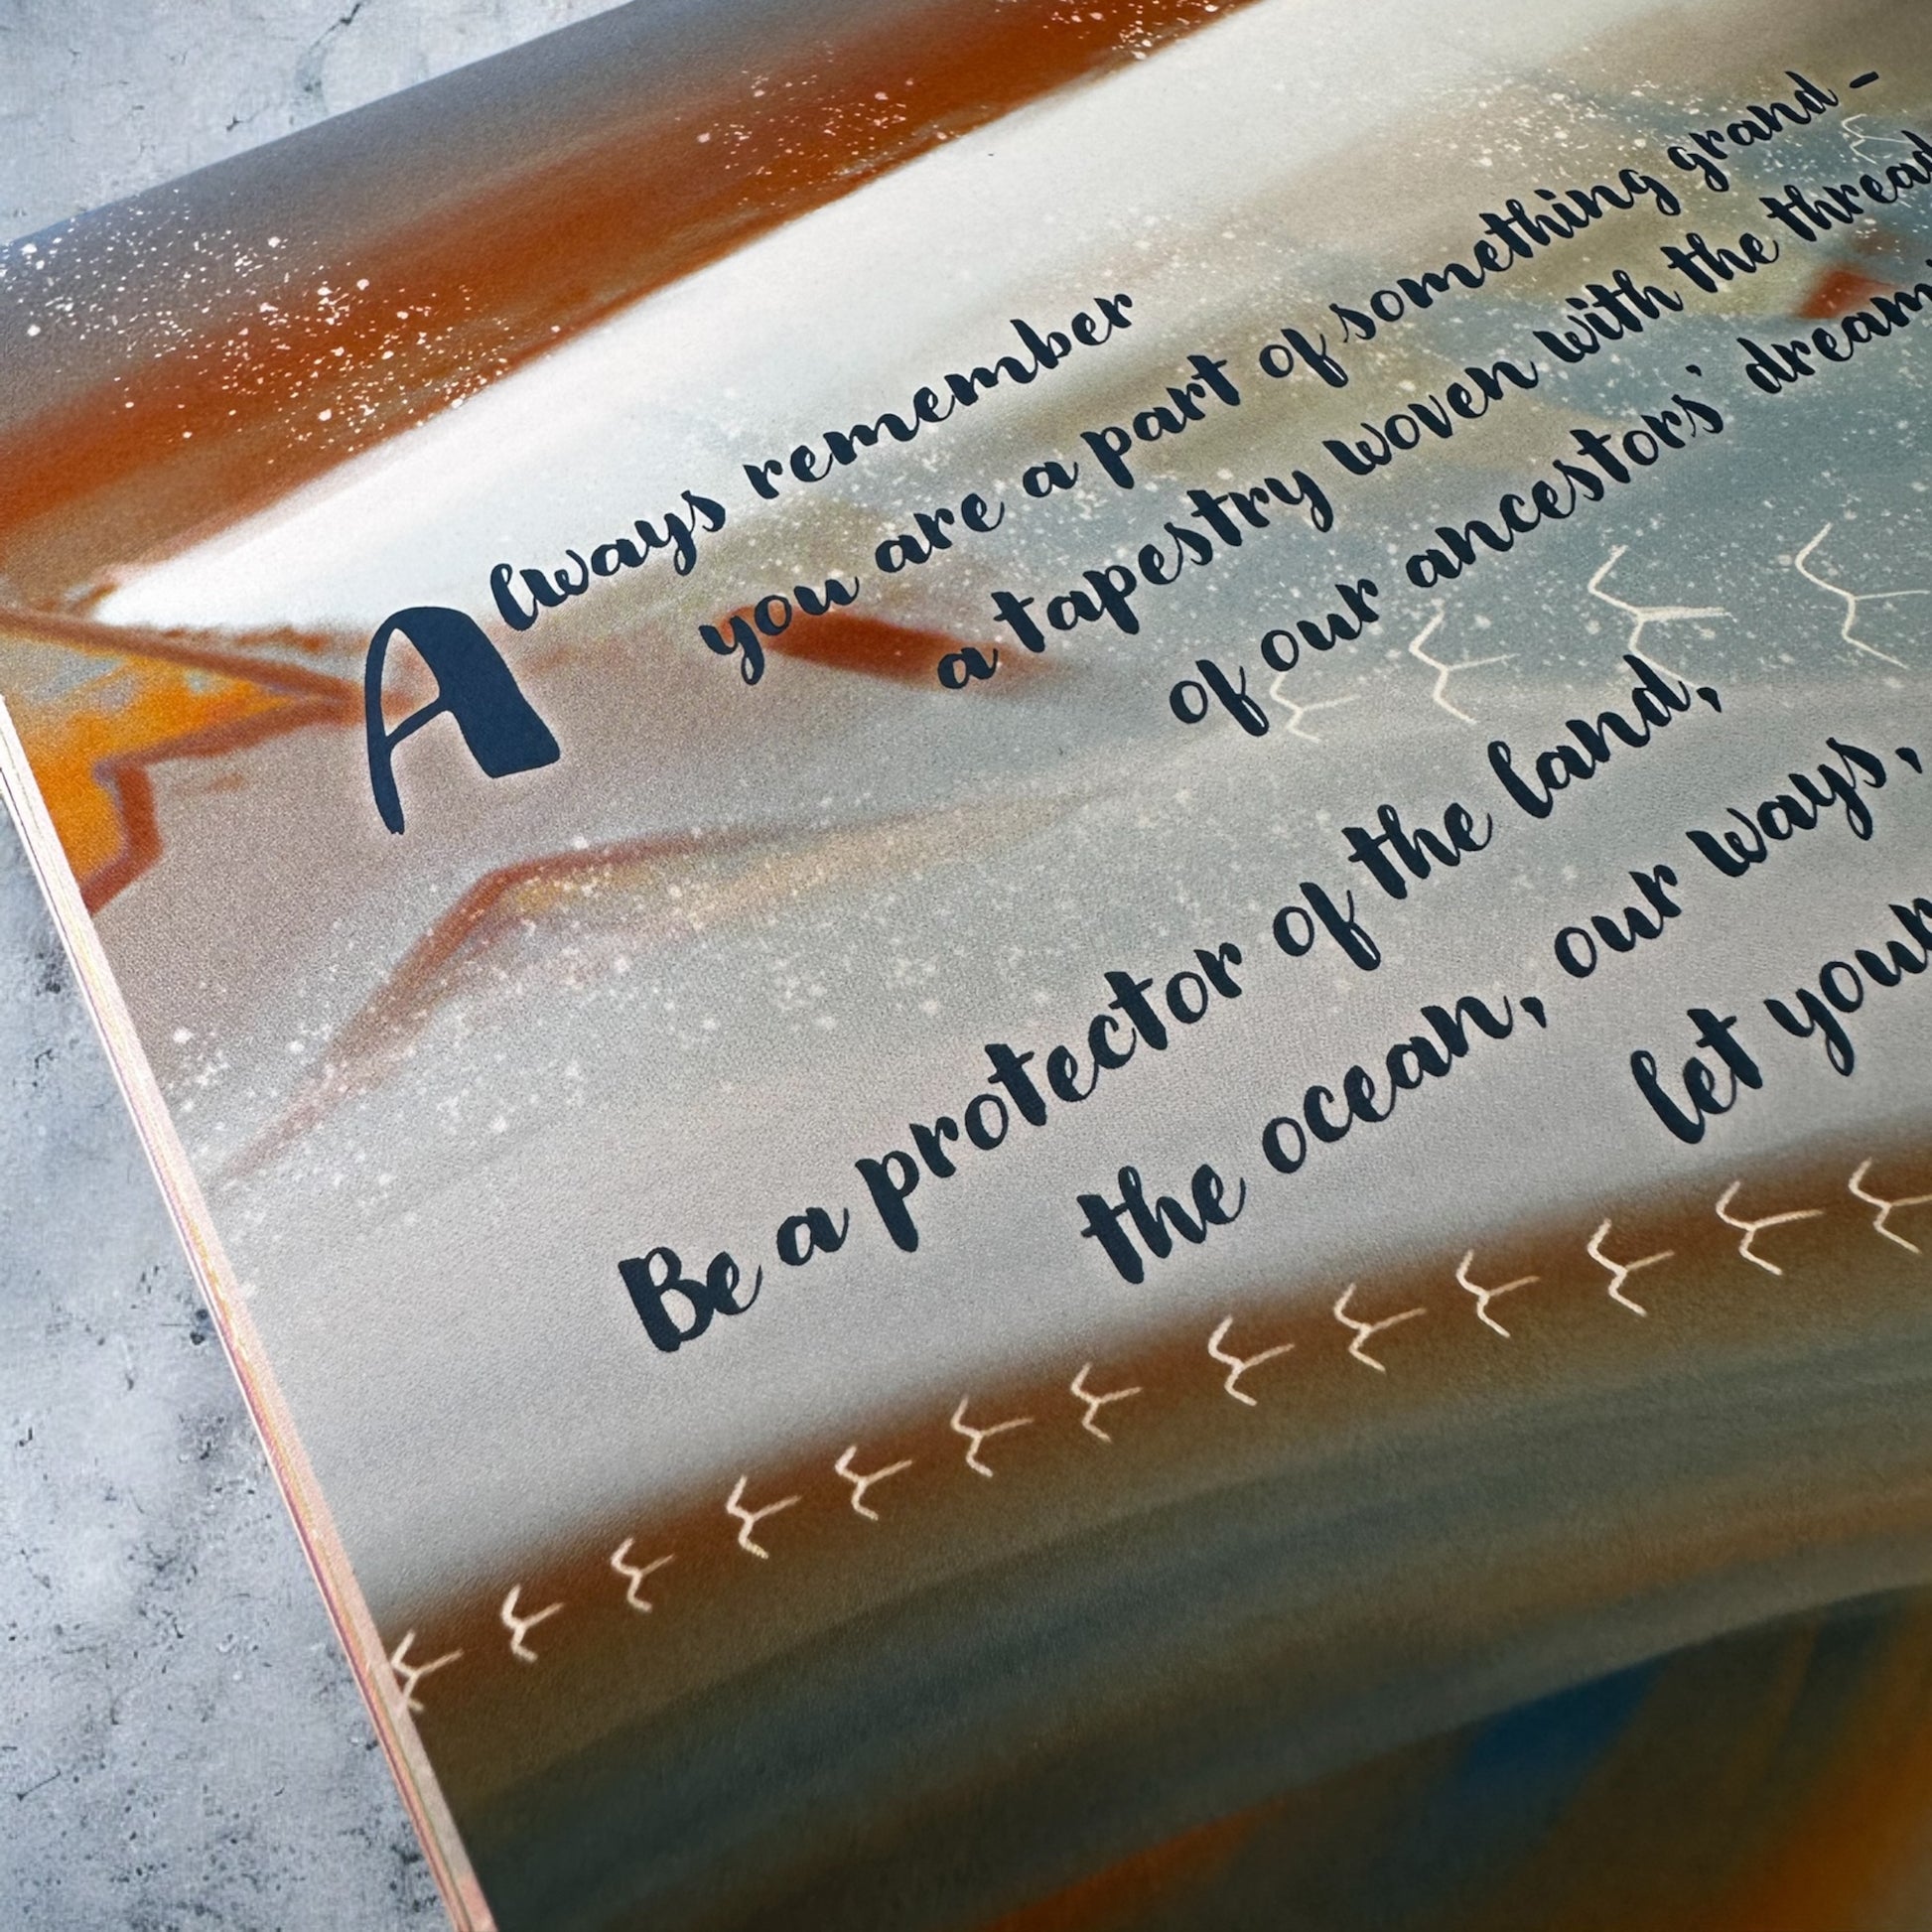 Always remember
you are a part of something grand –
a tapestry woven with the thread
of our ancestors' dream
Be a protector of the land,
the ocean, our ways,
let your